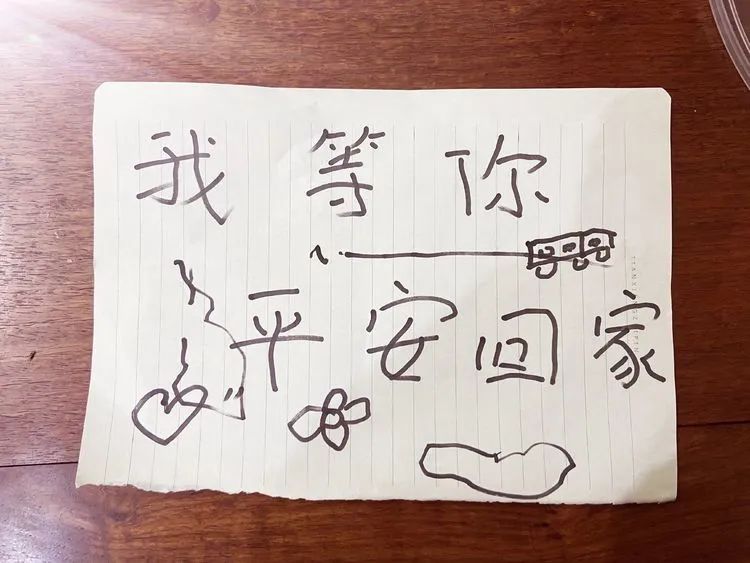 我等你
平安回家